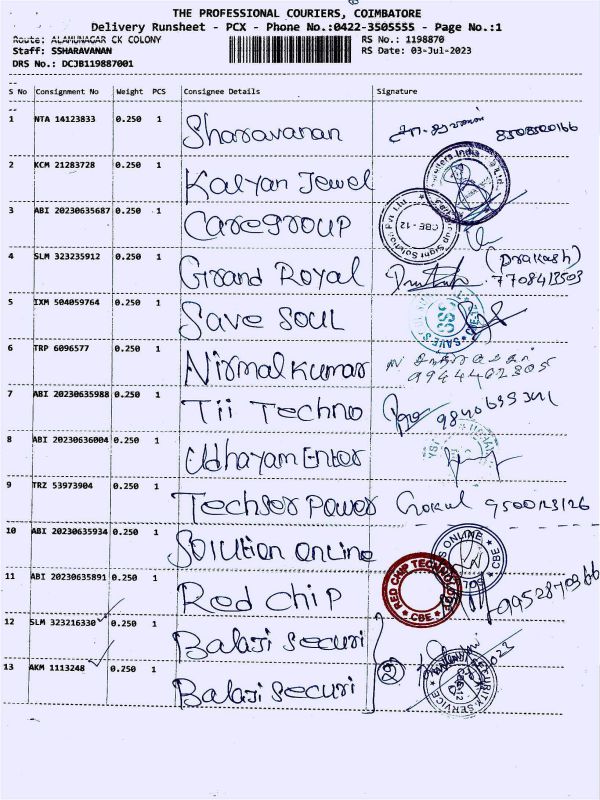 THE PROFESSIONAL COURIERS, COIMBATORE
Delivery Runsheet - PCX - Phone No.:0422-3505555 - Page No.:1
Route: ALAMUNAGAR CK COLONY RS No.: 1198870
Staff: SSHARAVANAN RS Date: 03-Jul-2023
DRS No.: DCJB119887001
S No Consignment No Weight PCS Consignee Details Signature
1 NTA 14123833 0.250 1 Sharavanan
2 KCM 21283728 0.250 1 Kalyan Jewel
3 ABI 20230635687 0.250 1 Caregroup CBE-12
4 SLM 323235912 0.250 1 Grand Royal (Prakash)
7708413503
5 IXM 504059764 0.250 1 Save Soul
6 TRP 6096577 0.250 1 Nirmalkumar
7 ABI 20230635988 0.250 1 Tii Techno
8 ABI 20230636004 0.250 1 Udhayam Enter
9 TRZ 53973904 0.250 1 Techser Power Gokul
10 ABI 20230635934 0.250 1 Solution Online
11 ABI 20230635891 0.250 1 Red Chip RED CHIP TECHNOLOGY CBE
12 SLM 323216330 0.250 1 Balaji Securi
13 AKM 1113248 0.250 1 Balaji Securi 2